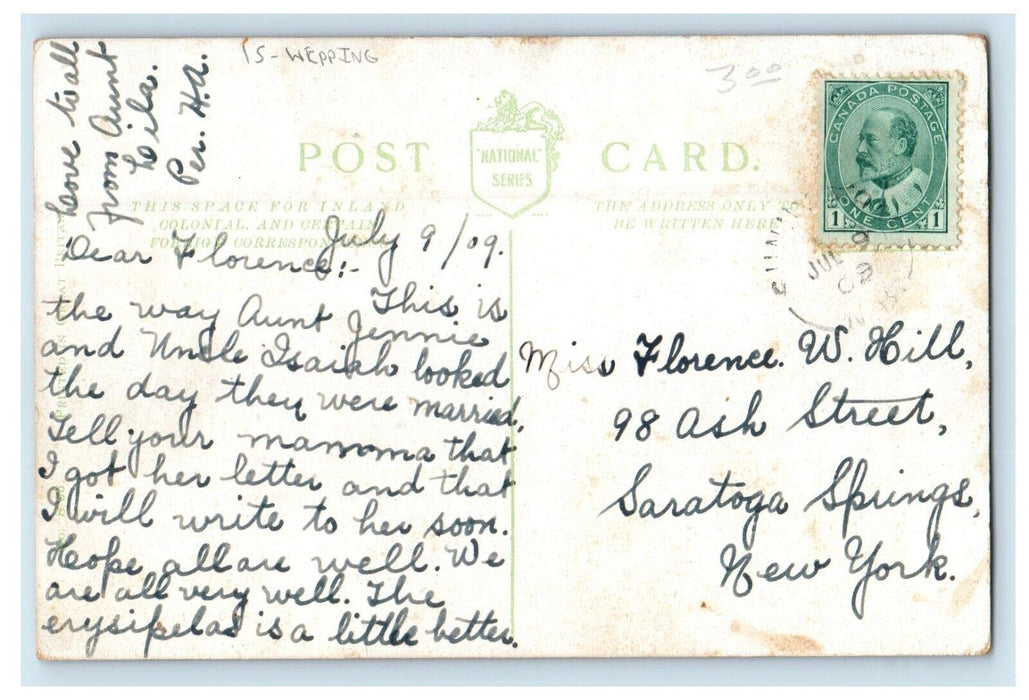 15 - WEDDING
3.00
Love to all
from Aunt
Lila.
Per. H.A.
POST CARD.
"NATIONAL"
SERIES
THIS SPACE FOR INLAND,
COLONIAL, AND CERTAIN
FOREIGN CORRESPON
THE ADDRESS ONLY TO
BE WRITTEN HERE
CANADA POSTAGE
1 ONE CENT 1
JUL 9
09
July 9/09.
Dear Florence:-
This is
the way Aunt Jennie
and Uncle Isaiah looked
the day they were married.
Tell your mamma that
I got her letter and that
I will write to her soon.
Hope all are well. We
are all very well. The
erysipelas is a little better.
Miss Florence. W. Hill,
98 Ash Street,
Saratoga Springs,
New York.